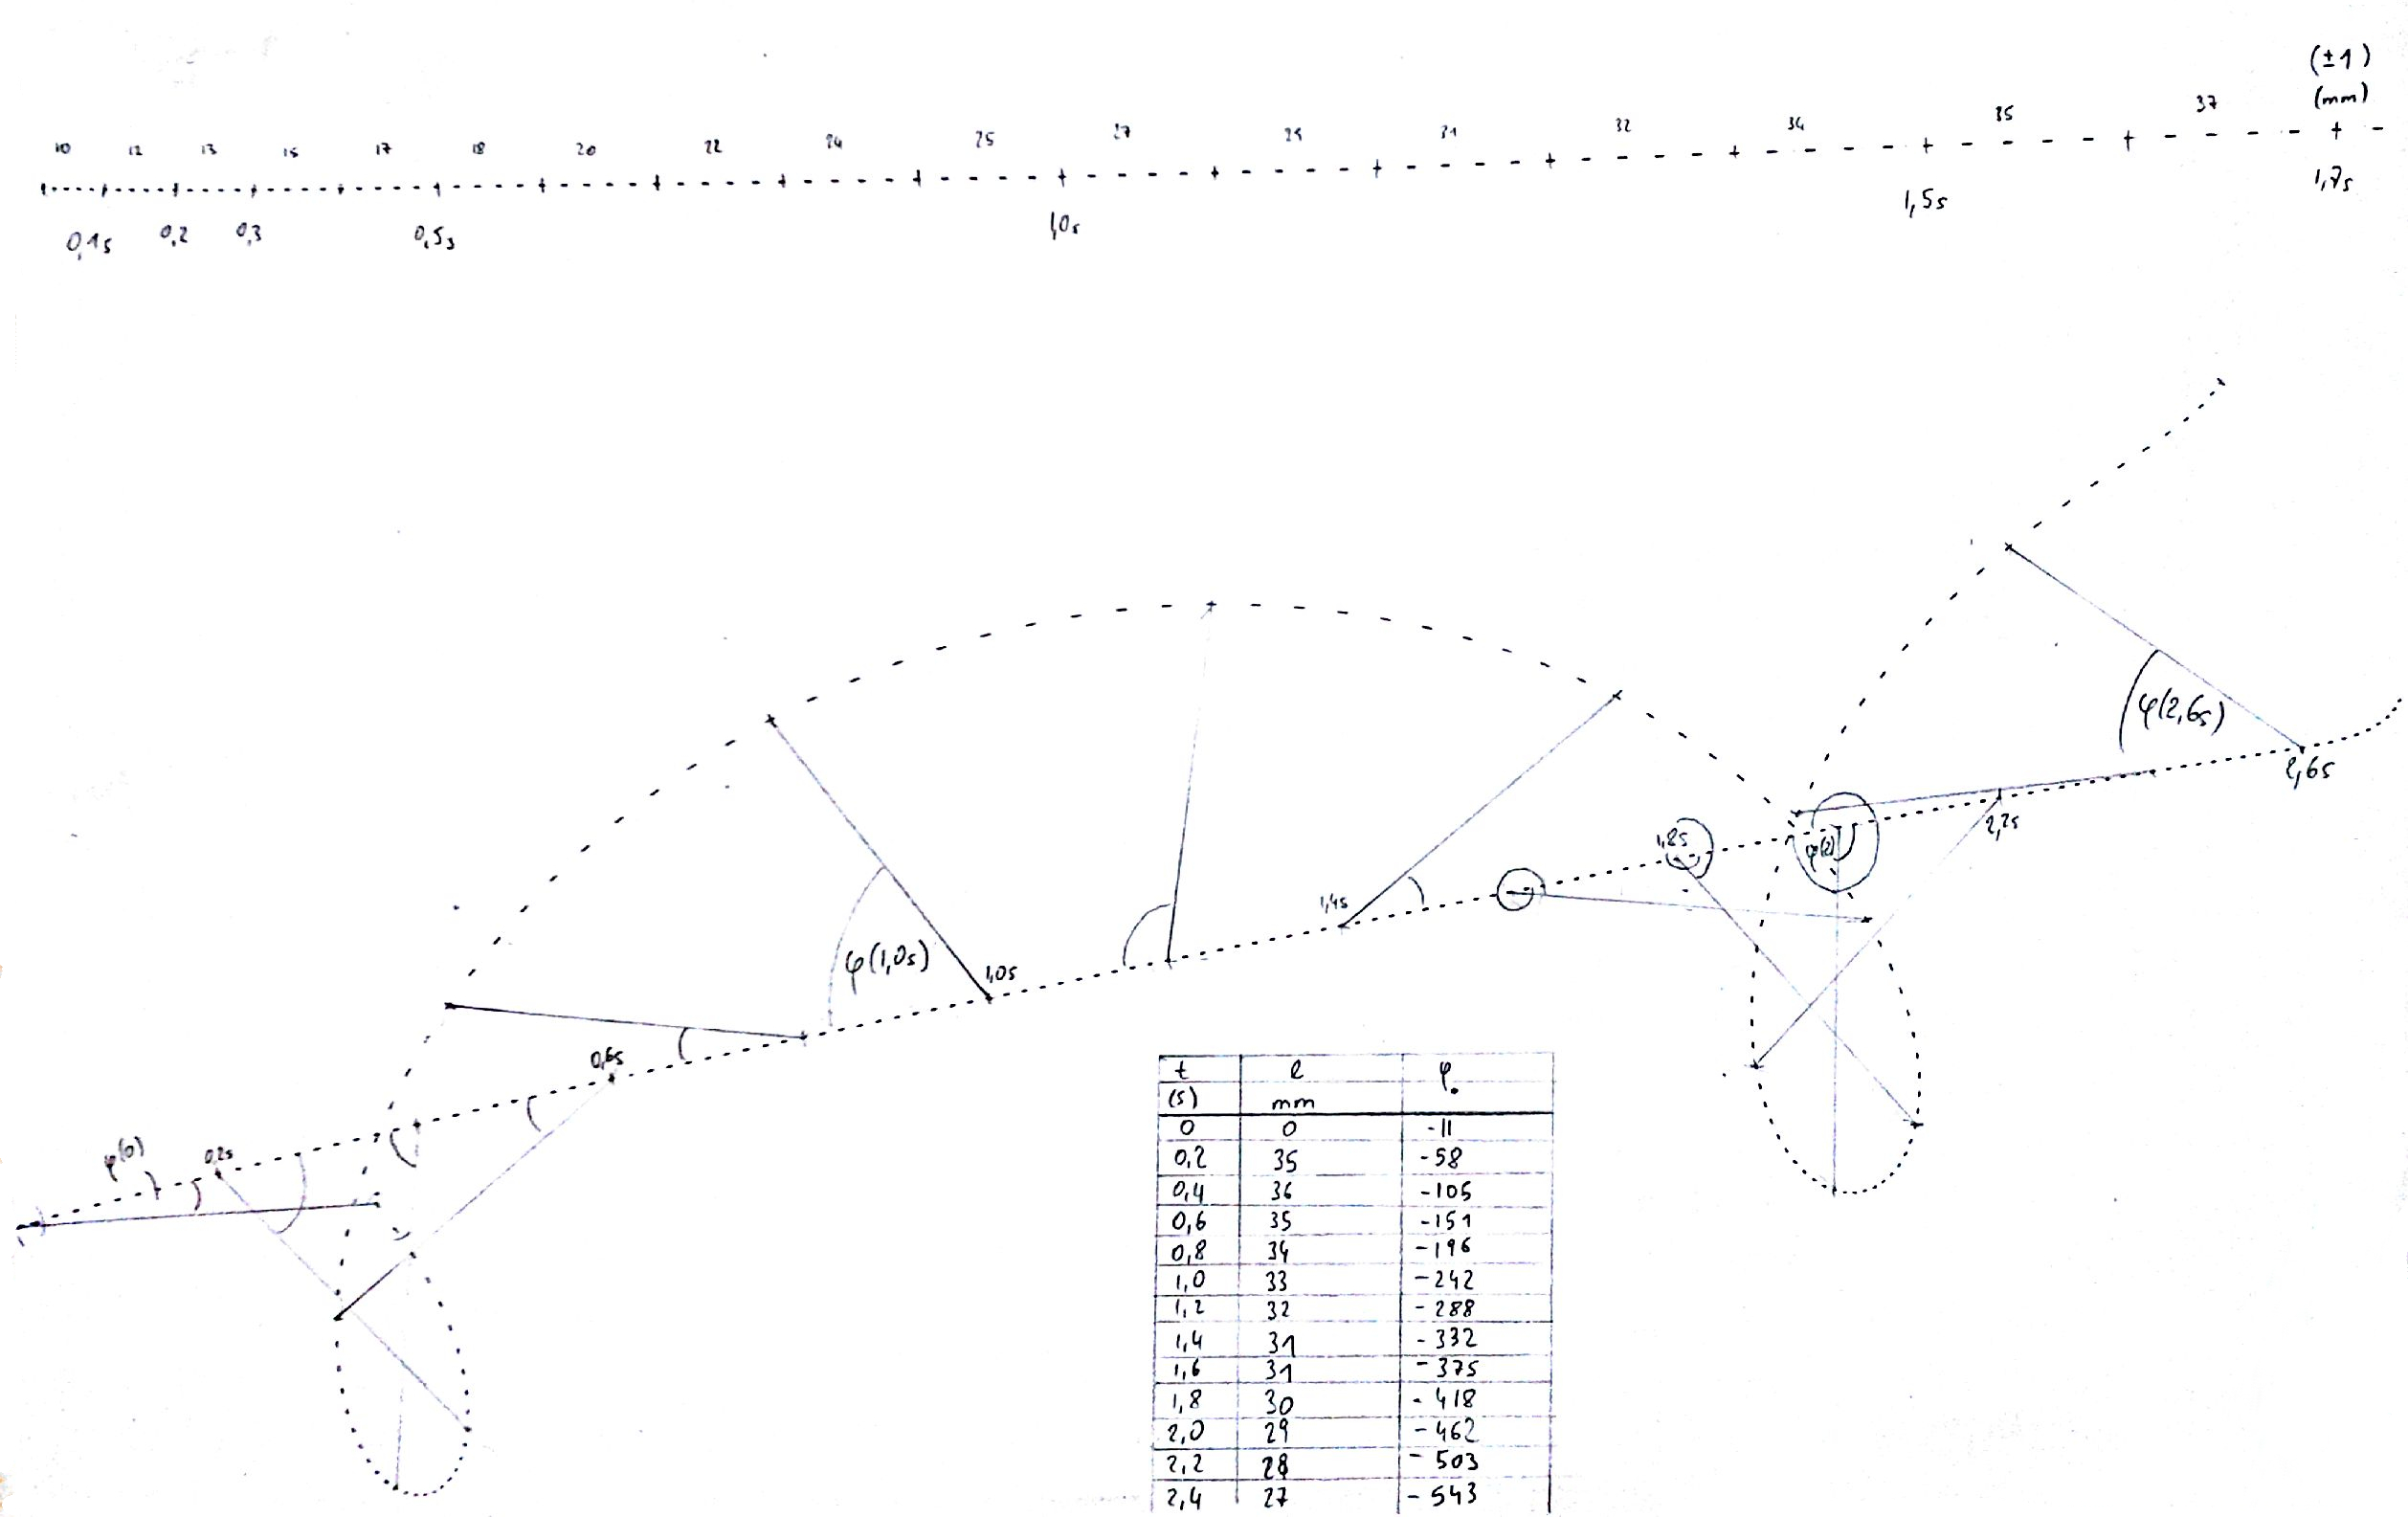 (±1)
(mm)
10 12 13 15 17 18 20 22 24 25 27 29 31 32 34 35 37
0,1s 0,2 0,3 0,5s 1,0s 1,5s 1,7s
φ(2,6s)
2,6s
1,8s
φ(2)
2,2s
1,4s
φ(1,0s)
1,0s
0,6s
φ(0)
0,2s
t l φ
(s) mm °
0 0 -11
0,2 35 -58
0,4 36 -105
0,6 35 -151
0,8 34 -196
1,0 33 -242
1,2 32 -288
1,4 31 -332
1,6 31 -375
1,8 30 -418
2,0 29 -462
2,2 28 -503
2,4 27 -543